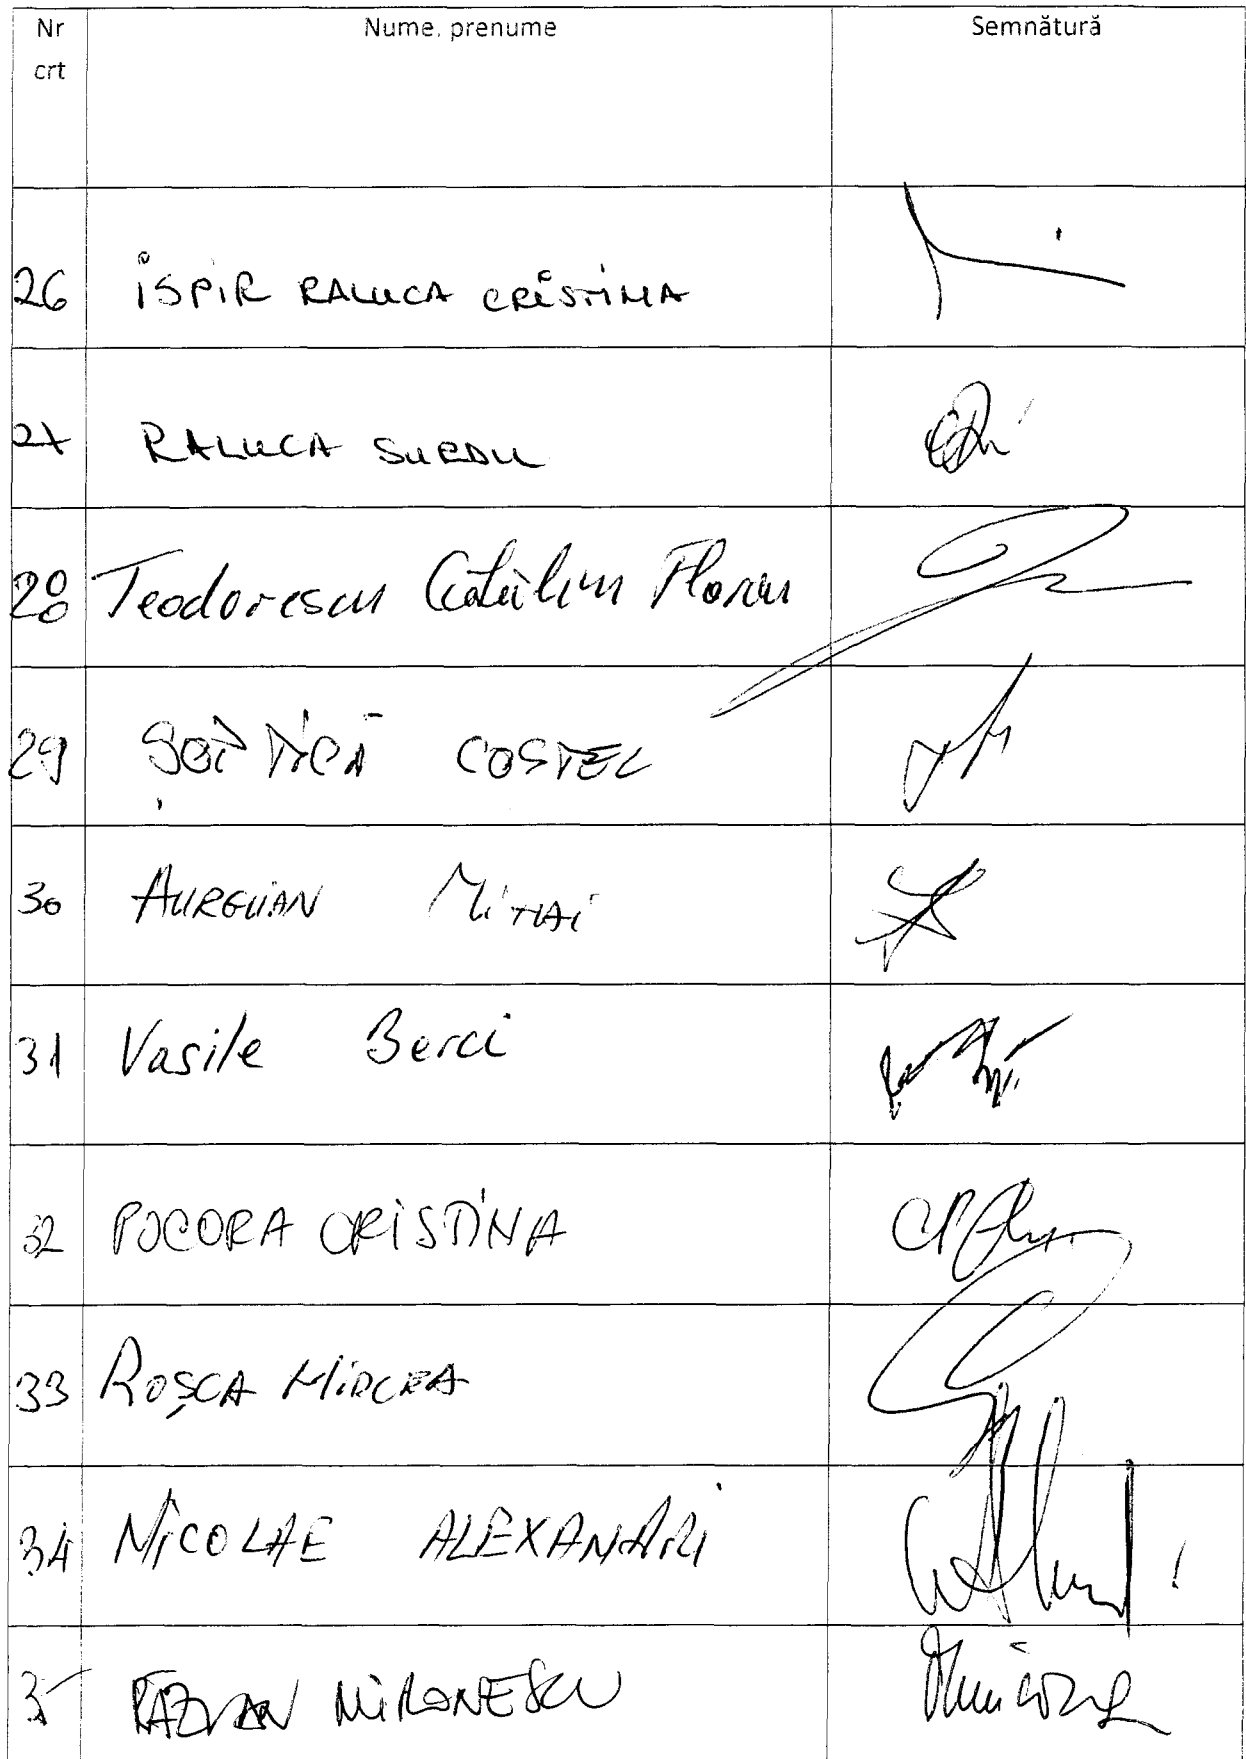 Nr Nume, prenume Semnătură
crt
26 ISPIR RALUCA CRISTINA
27 RALUCA SURDU
28 Teodorescu Cătălin Florin
29 ȘOPTICĂ COSTEL
30 AURELIAN MIHAI
31 Vasile Berci
32 POCORA CRISTINA
33 ROȘCA MIRCEA
34 NICOLAE ALEXANDRI
35 RĂZVAN MIRONESCU